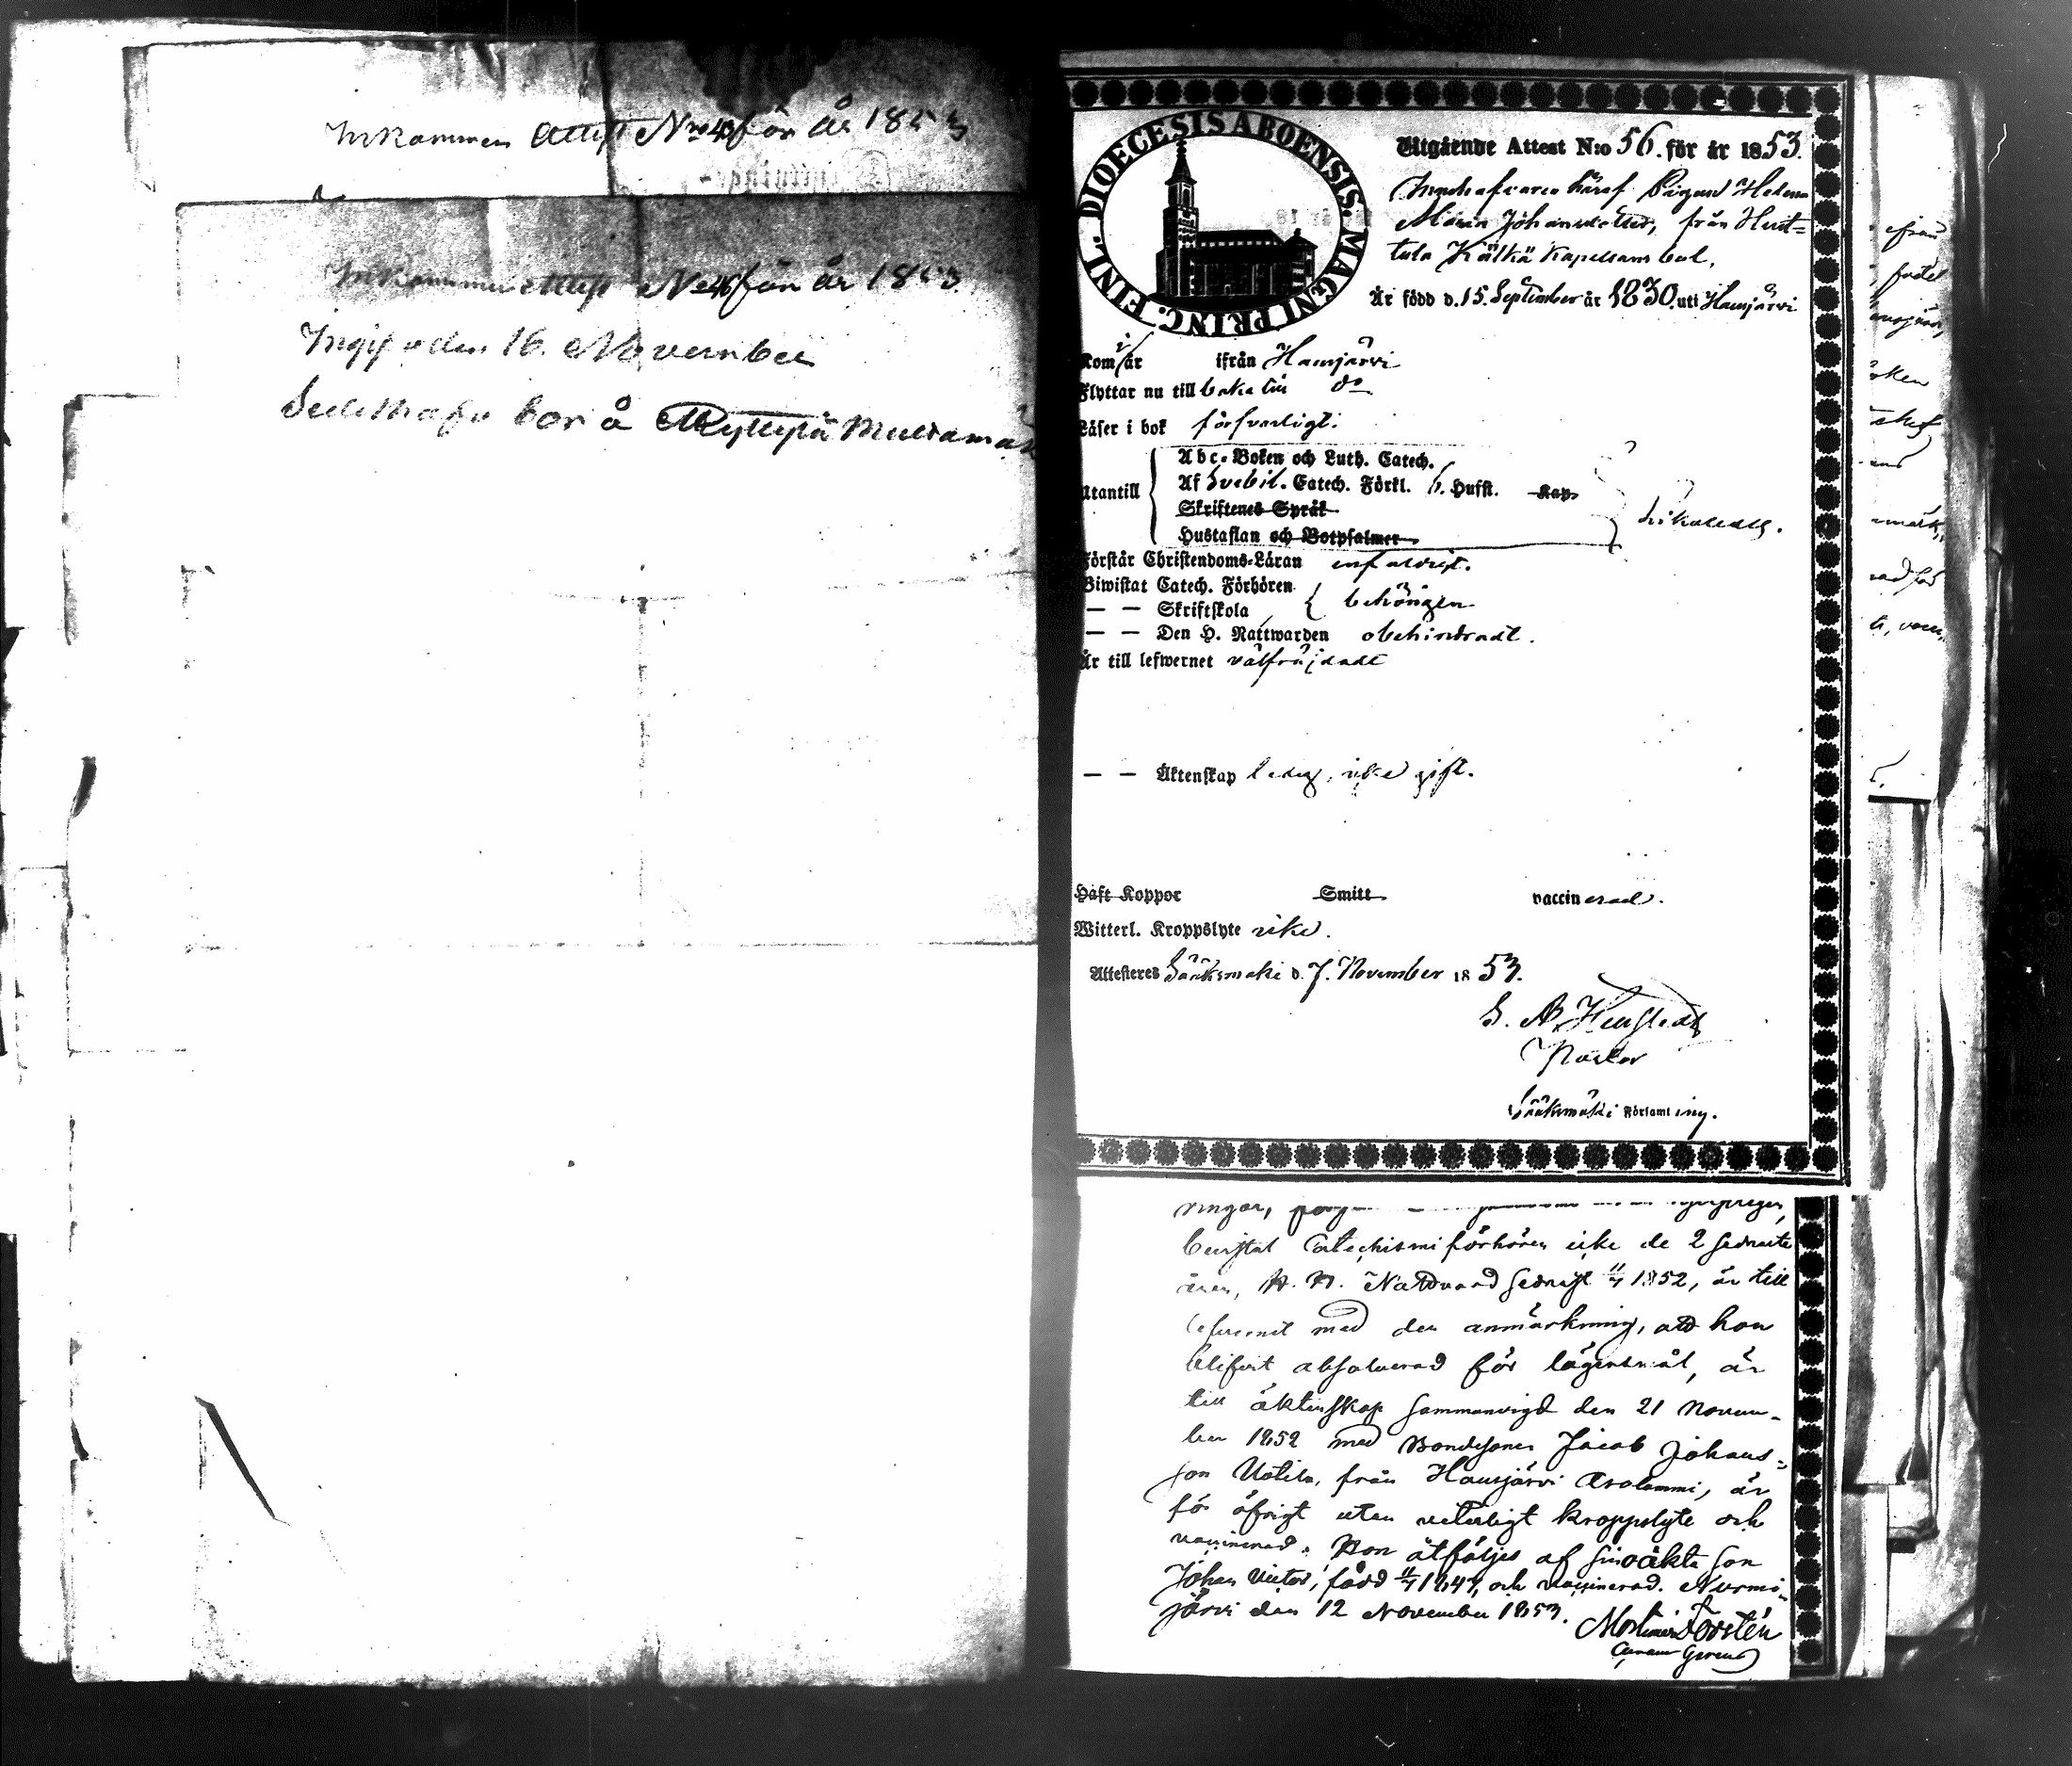 Inkommen Attest No 43 för år 1853
Inkommen Attest No 46 för år 1853
den 16. November
bor å
FINL. DIOECESIS ABOENSIS. MAGNI PRINC.
Utgående Attest N:o 56. för år 1853.
Maria Johansdotter, från Hut=
tula Kapellans bol,
Är född d. 15. September år 1830. uti Hausjärvi
Kom i år ifrån Hausjärvi
Flyttar nu till baka till do
Läser i bok försvarligt.
Abc-Boken och Luth. Catech.
Utantill Af Svebil. Catech. Förkl. 6. Hufst. Kap.
Skriftenes Språk
likaledes.
Hustaflan och Botpsalmer
Förstår Christendoms-Läran enfaldigt.
Biwistat Catech. Förhören
— — Skriftskola behörigen
— — Den H. Nattwarden obehindradt.
Är till lefwernet välfräjdadt
— — Äktenskap ledig, icke gift.
Haft Koppor Smitt vaccinerad.
Witterl. Kroppslyte icke.
Attesteras Sääksmäki d. 7. November 1853.
Pastor
Sääksmäki Församling.
ringar,
bevistat Catechismiförhören icke de 2 sednaste
åren, H. H. Nattvard sednast 11/7 1852, är till
lefvernet med den anmärkning, att hon
blifvit absolverad för lägersmål, är
till äktenskap sammanvigd den 21 Novem-
ber 1852 med Bondesonen Jacob Johans=
son Uotila, från Hausjärvi Arolammi, är
för öfrigt utan veterligt kroppslyte och
vaccinerad. Hon åtföljes af sin oäkta son
Johan Victor, född och vaccinerad. Nurmi-
järvi den 12 November 1853.
Forstén
ifrån